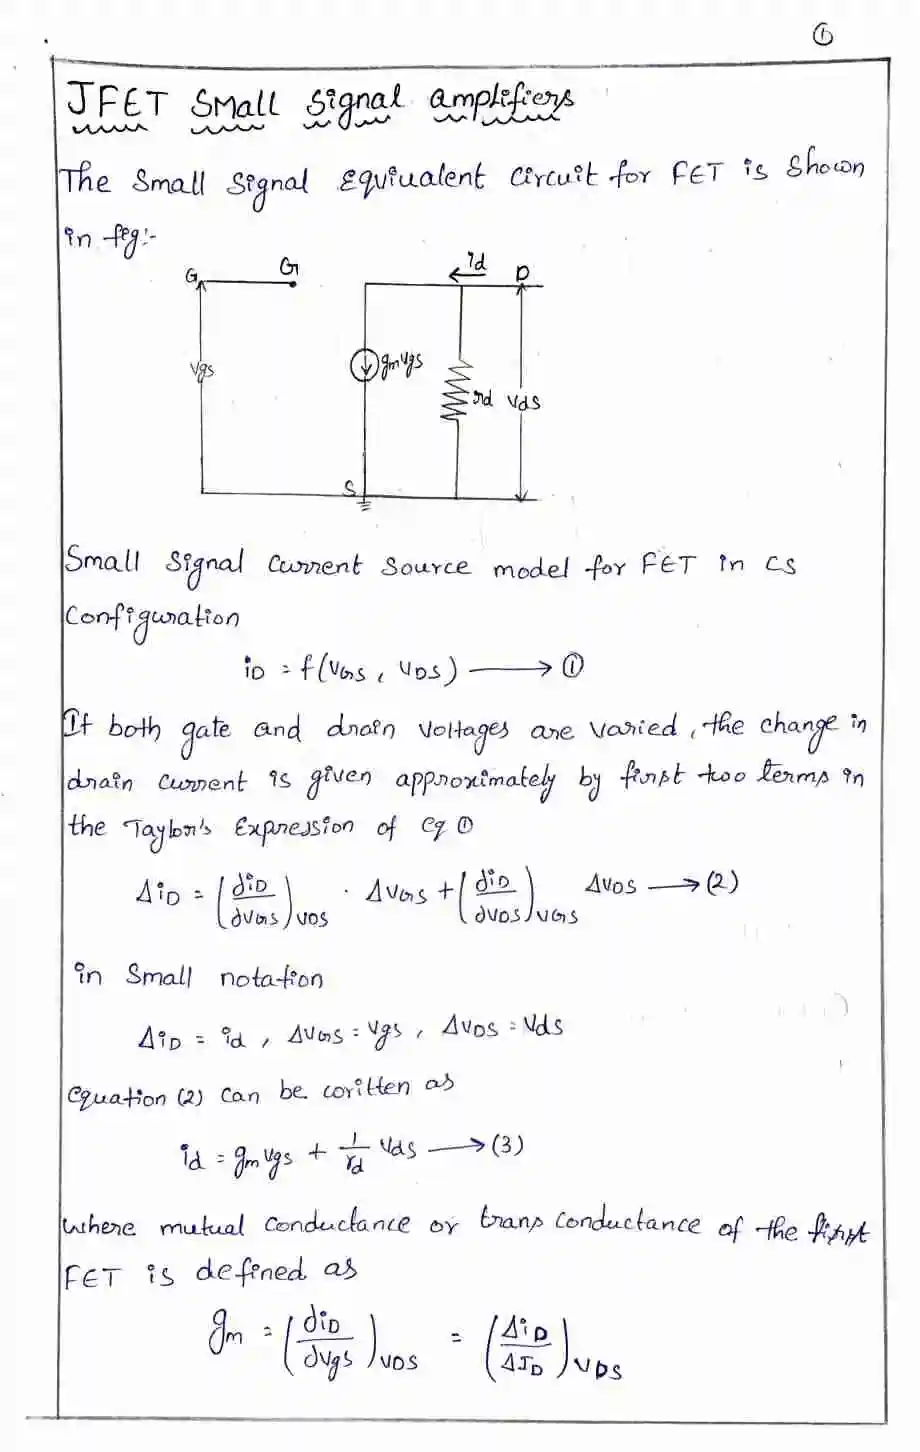 ①
JFET Small Signal amplifiers
The Small Signal Equivalent circuit for FET is Shown
in fig:-
G G id D
Vgs gmVgs rd Vds
S
Small Signal Current Source model for FET in CS
Configuration
iD = f(VGS, VDS) ⟶ ①
If both gate and drain voltages are varied, the change in
drain current is given approximately by first two terms in
the Taylor's Expression of eq ①
ΔiD = (∂iD/∂VGS)VDS · ΔVGS + (∂iD/∂VDS)VGS ΔVDS ⟶ (2)
in Small notation
ΔiD = id, ΔVGS = Vgs, ΔVDS = Vds
equation (2) can be written as
id = gmVgs + 1/rd Vds ⟶ (3)
where mutual conductance or trans conductance of the first
FET is defined as
gm = (∂iD/∂Vgs)VDS = (ΔiD/ΔID)VDS